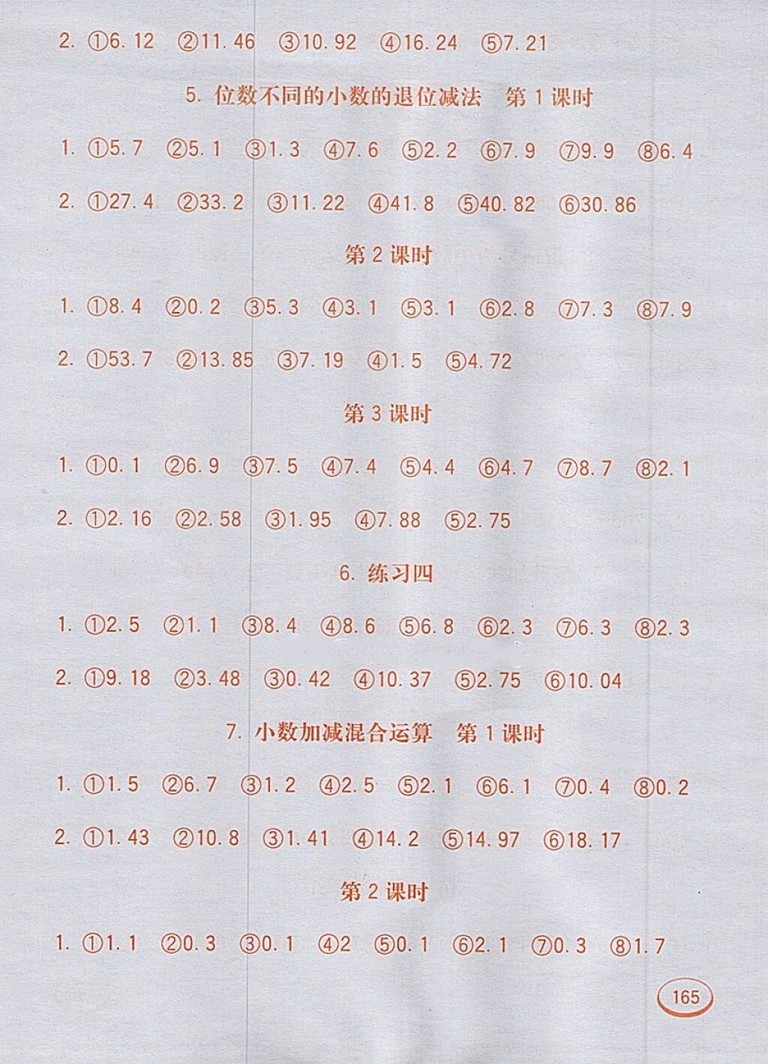 2. ①6.12 ②11.46 ③10.92 ④16.24 ⑤7.21
5. 位数不同的小数的退位减法 第1课时
1. ①5.7 ②5.1 ③1.3 ④7.6 ⑤2.2 ⑥7.9 ⑦9.9 ⑧6.4
2. ①27.4 ②33.2 ③11.22 ④41.8 ⑤40.82 ⑥30.86
第2课时
1. ①8.4 ②0.2 ③5.3 ④3.1 ⑤3.1 ⑥2.8 ⑦7.3 ⑧7.9
2. ①53.7 ②13.85 ③7.19 ④1.5 ⑤4.72
第3课时
1. ①0.1 ②6.9 ③7.5 ④7.4 ⑤4.4 ⑥4.7 ⑦8.7 ⑧2.1
2. ①2.16 ②2.58 ③1.95 ④7.88 ⑤2.75
6. 练习四
1. ①2.5 ②1.1 ③8.4 ④8.6 ⑤6.8 ⑥2.3 ⑦6.3 ⑧2.3
2. ①9.18 ②3.48 ③0.42 ④10.37 ⑤2.75 ⑥10.04
7. 小数加减混合运算 第1课时
1. ①1.5 ②6.7 ③1.2 ④2.5 ⑤2.1 ⑥6.1 ⑦0.4 ⑧0.2
2. ①1.43 ②10.8 ③1.41 ④14.2 ⑤14.97 ⑥18.17
第2课时
1. ①1.1 ②0.3 ③0.1 ④2 ⑤0.1 ⑥2.1 ⑦0.3 ⑧1.7
165